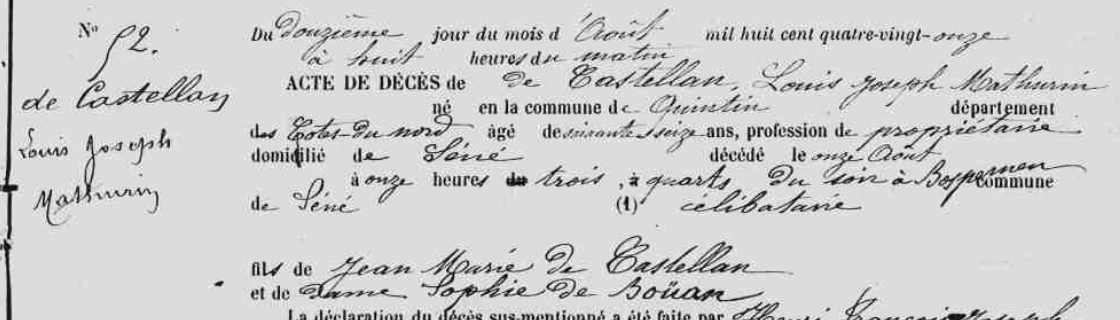 N° 52.
de Castellan
Louis Joseph
Mathurin
Du douzième jour du mois d'Août mil huit cent quatre-vingt-onze
à huit heures du matin
ACTE DE DÉCÈS de de Castellan, Louis Joseph Mathurin
né en la commune de Quintin département
des Cotes-du nord, âgé de soixante seize ans, profession de propriétaire
domicilié de Séné décédé le onze Août
à onze heures du trois quarts du soir à commune
de Séné (1) célibataire
fils de Jean Marie de Castellan
et de Dame Sophie de Boüan
La déclaration du décès sus-mentionné a été faite par Henri François Joseph